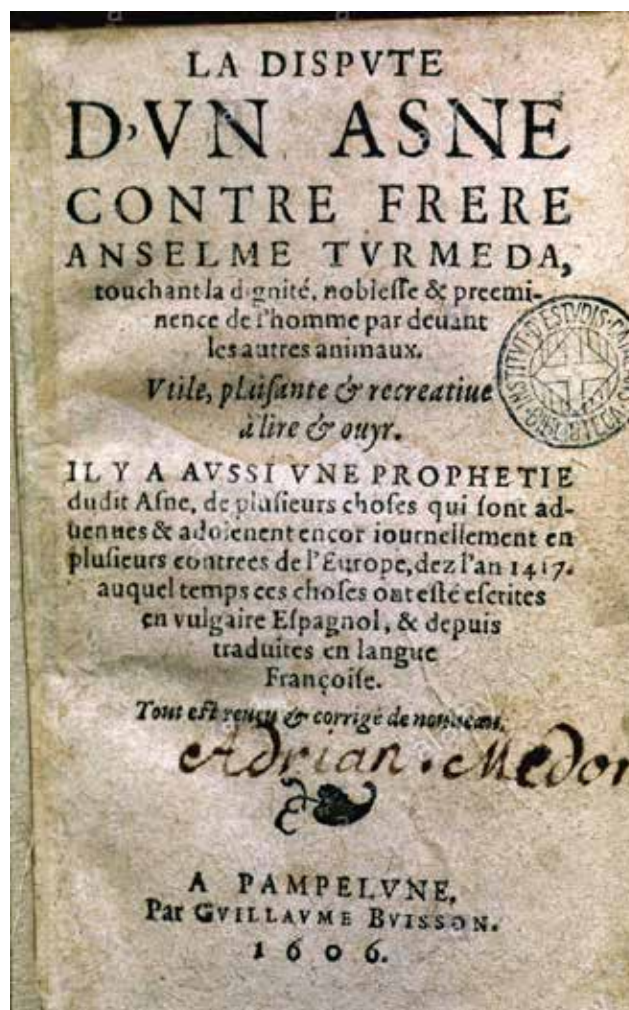 LA DISPVTE
D'VN ASNE
CONTRE FRERE
ANSELME TVRMEDA,
touchant la dignité, nobleſſe & preemi-
nence de l'homme par deuant
les autres animaux.
Vtile, plaiſante & recreatiue
à lire & ouyr.
IL Y A AVSSI VNE PROPHETIE
dudit Aſne, de pluſieurs choſes qui ſont ad-
uenues & aduienent encor iournellement en
pluſieurs contrees de l'Europe, dez l'an 1417.
auquel temps ces choſes ont eſté eſcrites
en vulgaire Eſpagnol, & depuis
traduites en langue
Françoiſe.
Tout eſt reueu & corrigé de nouueau.
Adrian. Medon
A PAMPELVNE,
Par GVILLAVME BVISSON.
1606.
INSTITVT D'ESTVDIS CATALANS
BIBLIOTECA